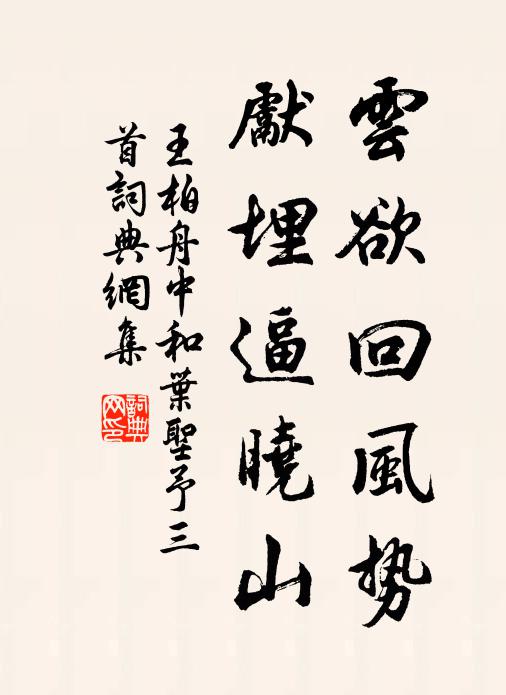 雲欲回風勢
獻埋逼曉山
王柏舟中和葉聖予三
首詞典網集
詞典
网印